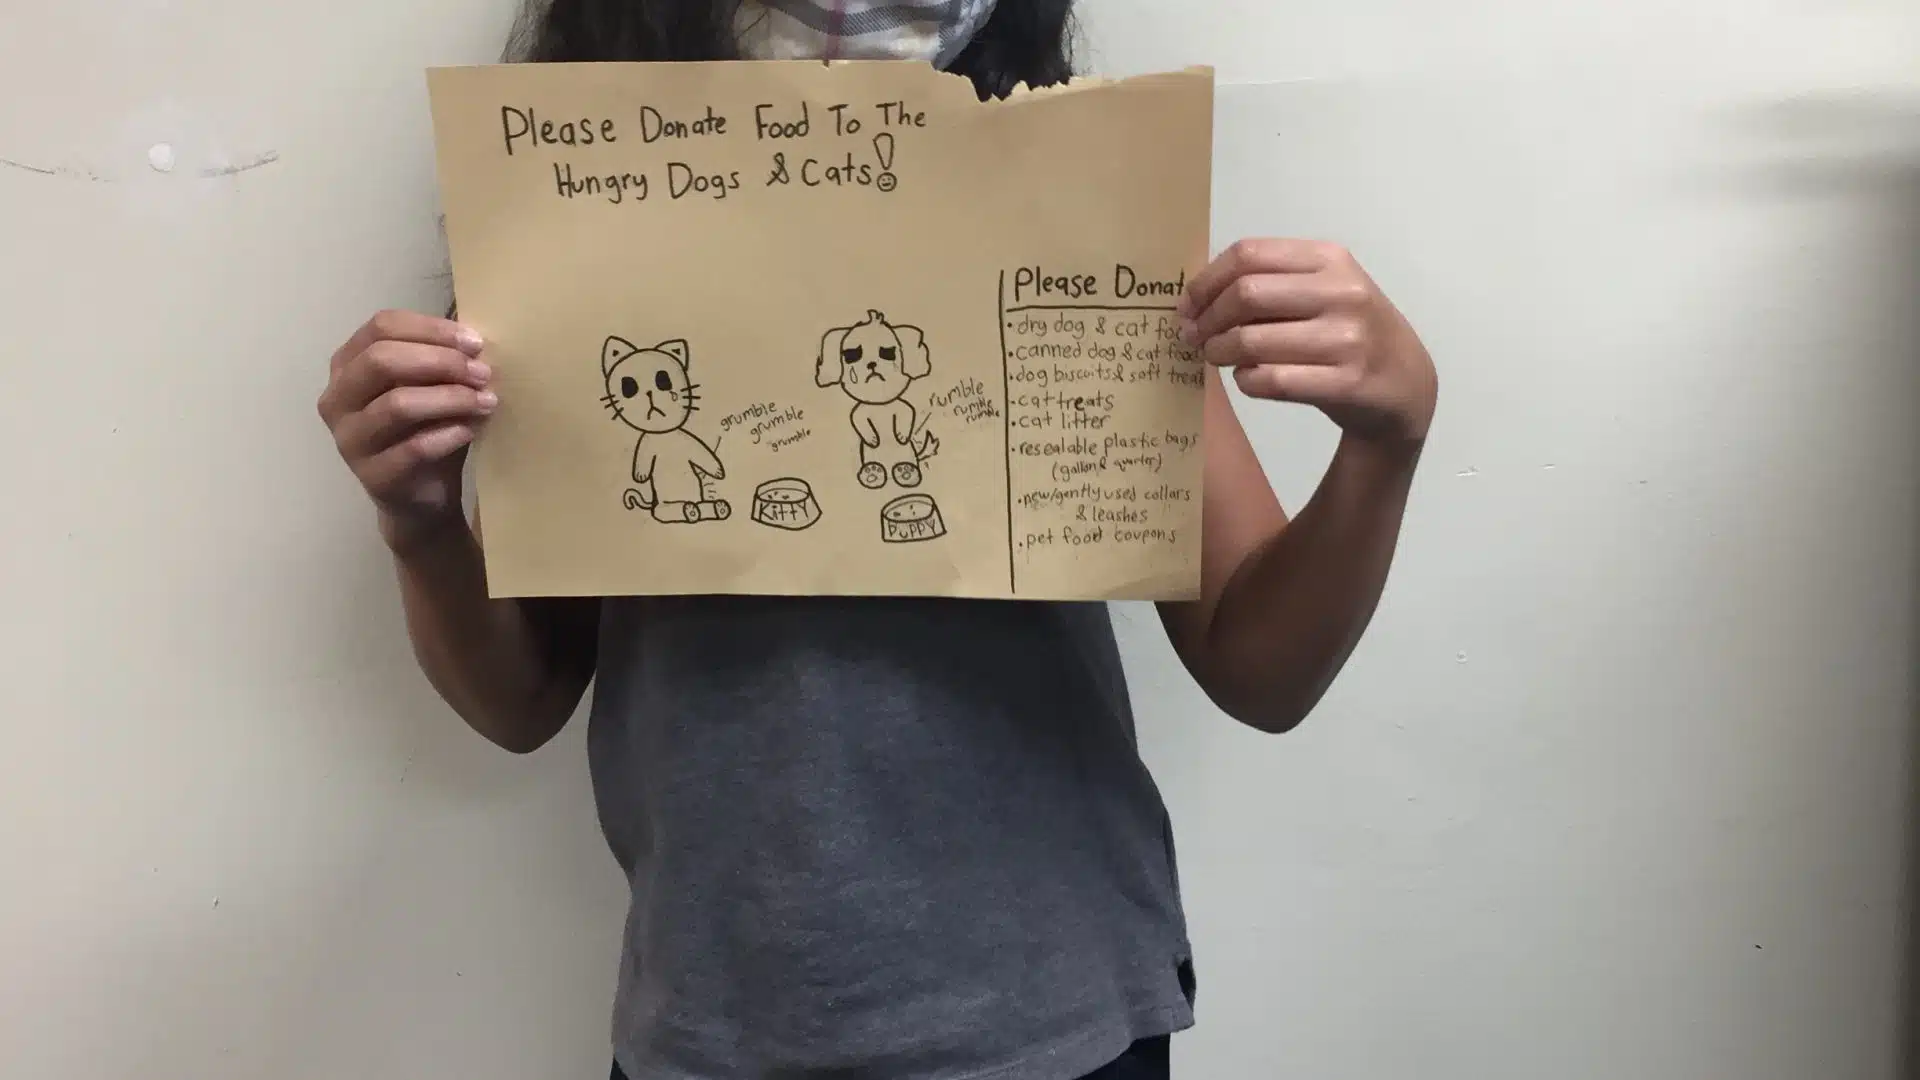 Please Donate Food To The
Hungry Dogs & Cats!
grumble
grumble
grumble
KITTY
rumble
rumble
rumble
PUPPY
Please Donat
• dry dog & cat foo
• canned dog & cat food
• dog biscuits & soft treat
• cat treats
• cat litter
• resealable plastic bags
(gallon & quarter)
• new/gently used collars
& leashes
• pet food coupons